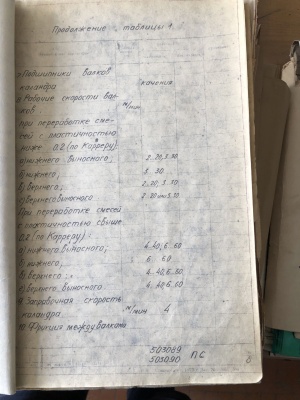 Продолжение таблицы 1.
Подшипники валков
каландра качения
Рабочие скорости вал-
ков м/мин
при переработке сме-
сей с пластичностью
ниже 0.2 (по Карреру):
а) нижнего выносного;
б) нижнего; 3. 30
в) верхнего;
г) верхнего выносного
При переработке смесей
с пластичностью свыше
0.2 (по Карреру):
а) нижнего выносного; 4.40; 6.60
нижнего; 6 60
в) верхнего; 4.40; 6.60
г) верхнего выносного 4.40; 6.60
9 Заправочная скорость
каландра м/мин 4
10 Фрикция между валками
503089
503090 ПС